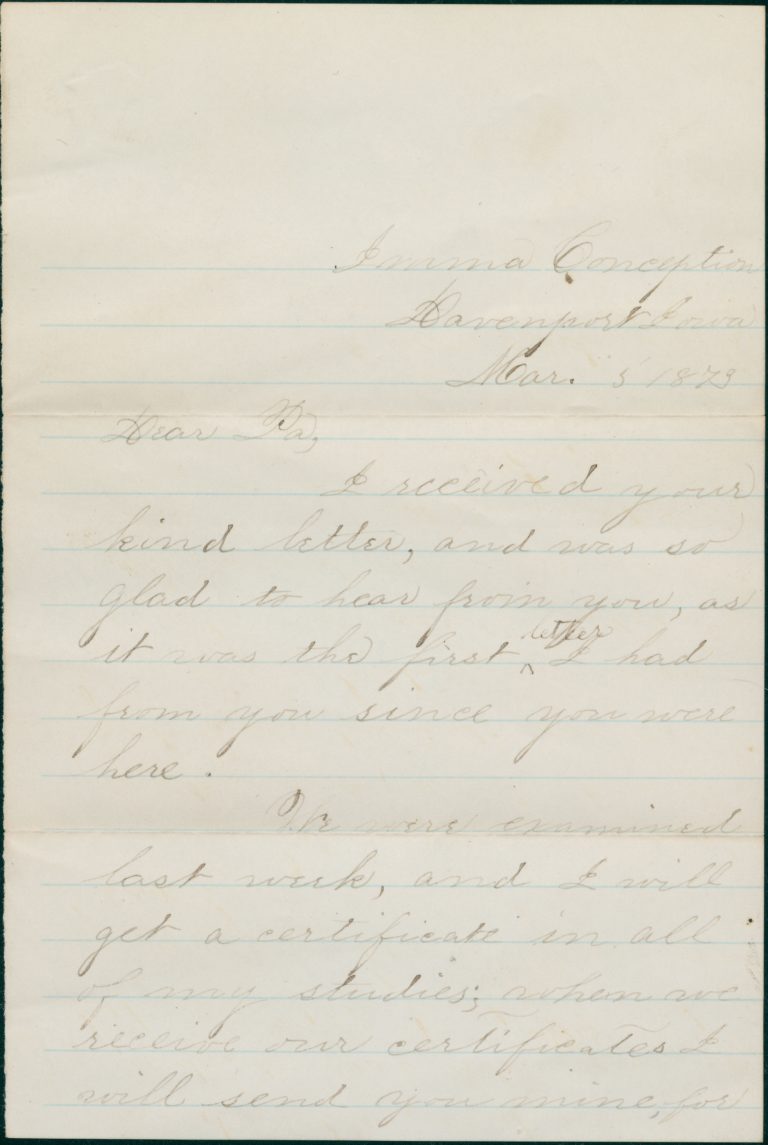 Imma Conception
Davenport Iowa
Mar. 5 1873
Dear Pa,
I received your
kind letter, and was so
glad to hear from you, as
it was the first ^letter I had
from you since you were
here.
We were examined
last week, and I will
get a certificate in all
of my studies; when we
receive our certificates I
will send you mine, for